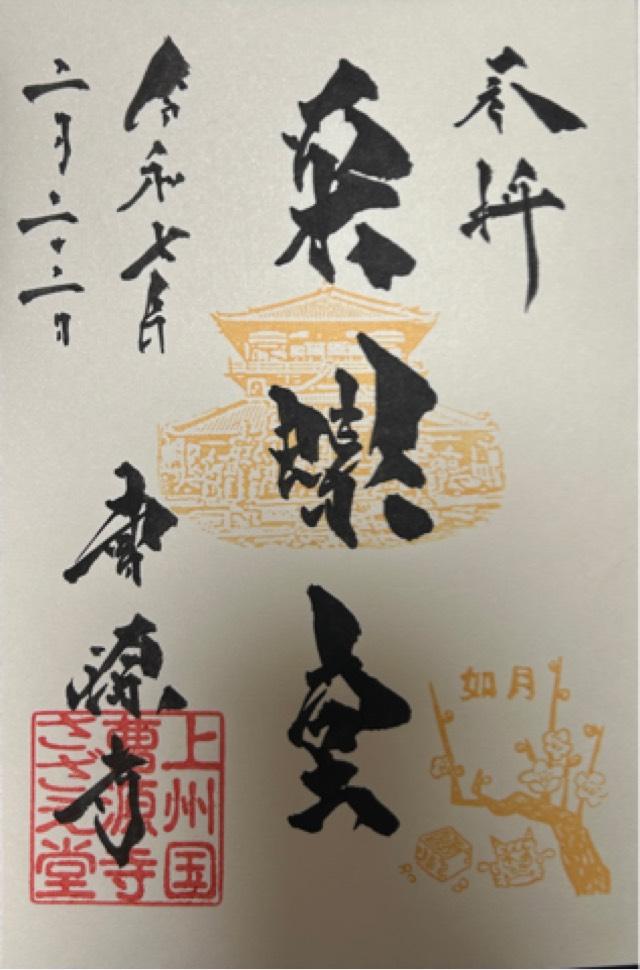 奉拝
栄螺堂
令和七年
二月二十二日
曹源寺
上州国
曹源寺
さざえ堂
如月